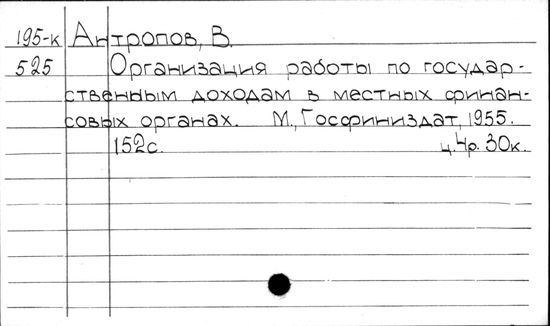 195-к Антропов, В.
525 Организация работы по государ-
ственным доходам в местных финан-
совых органах. М., Госфиниздат, 1955.
152с. ц. 4р. 30к.